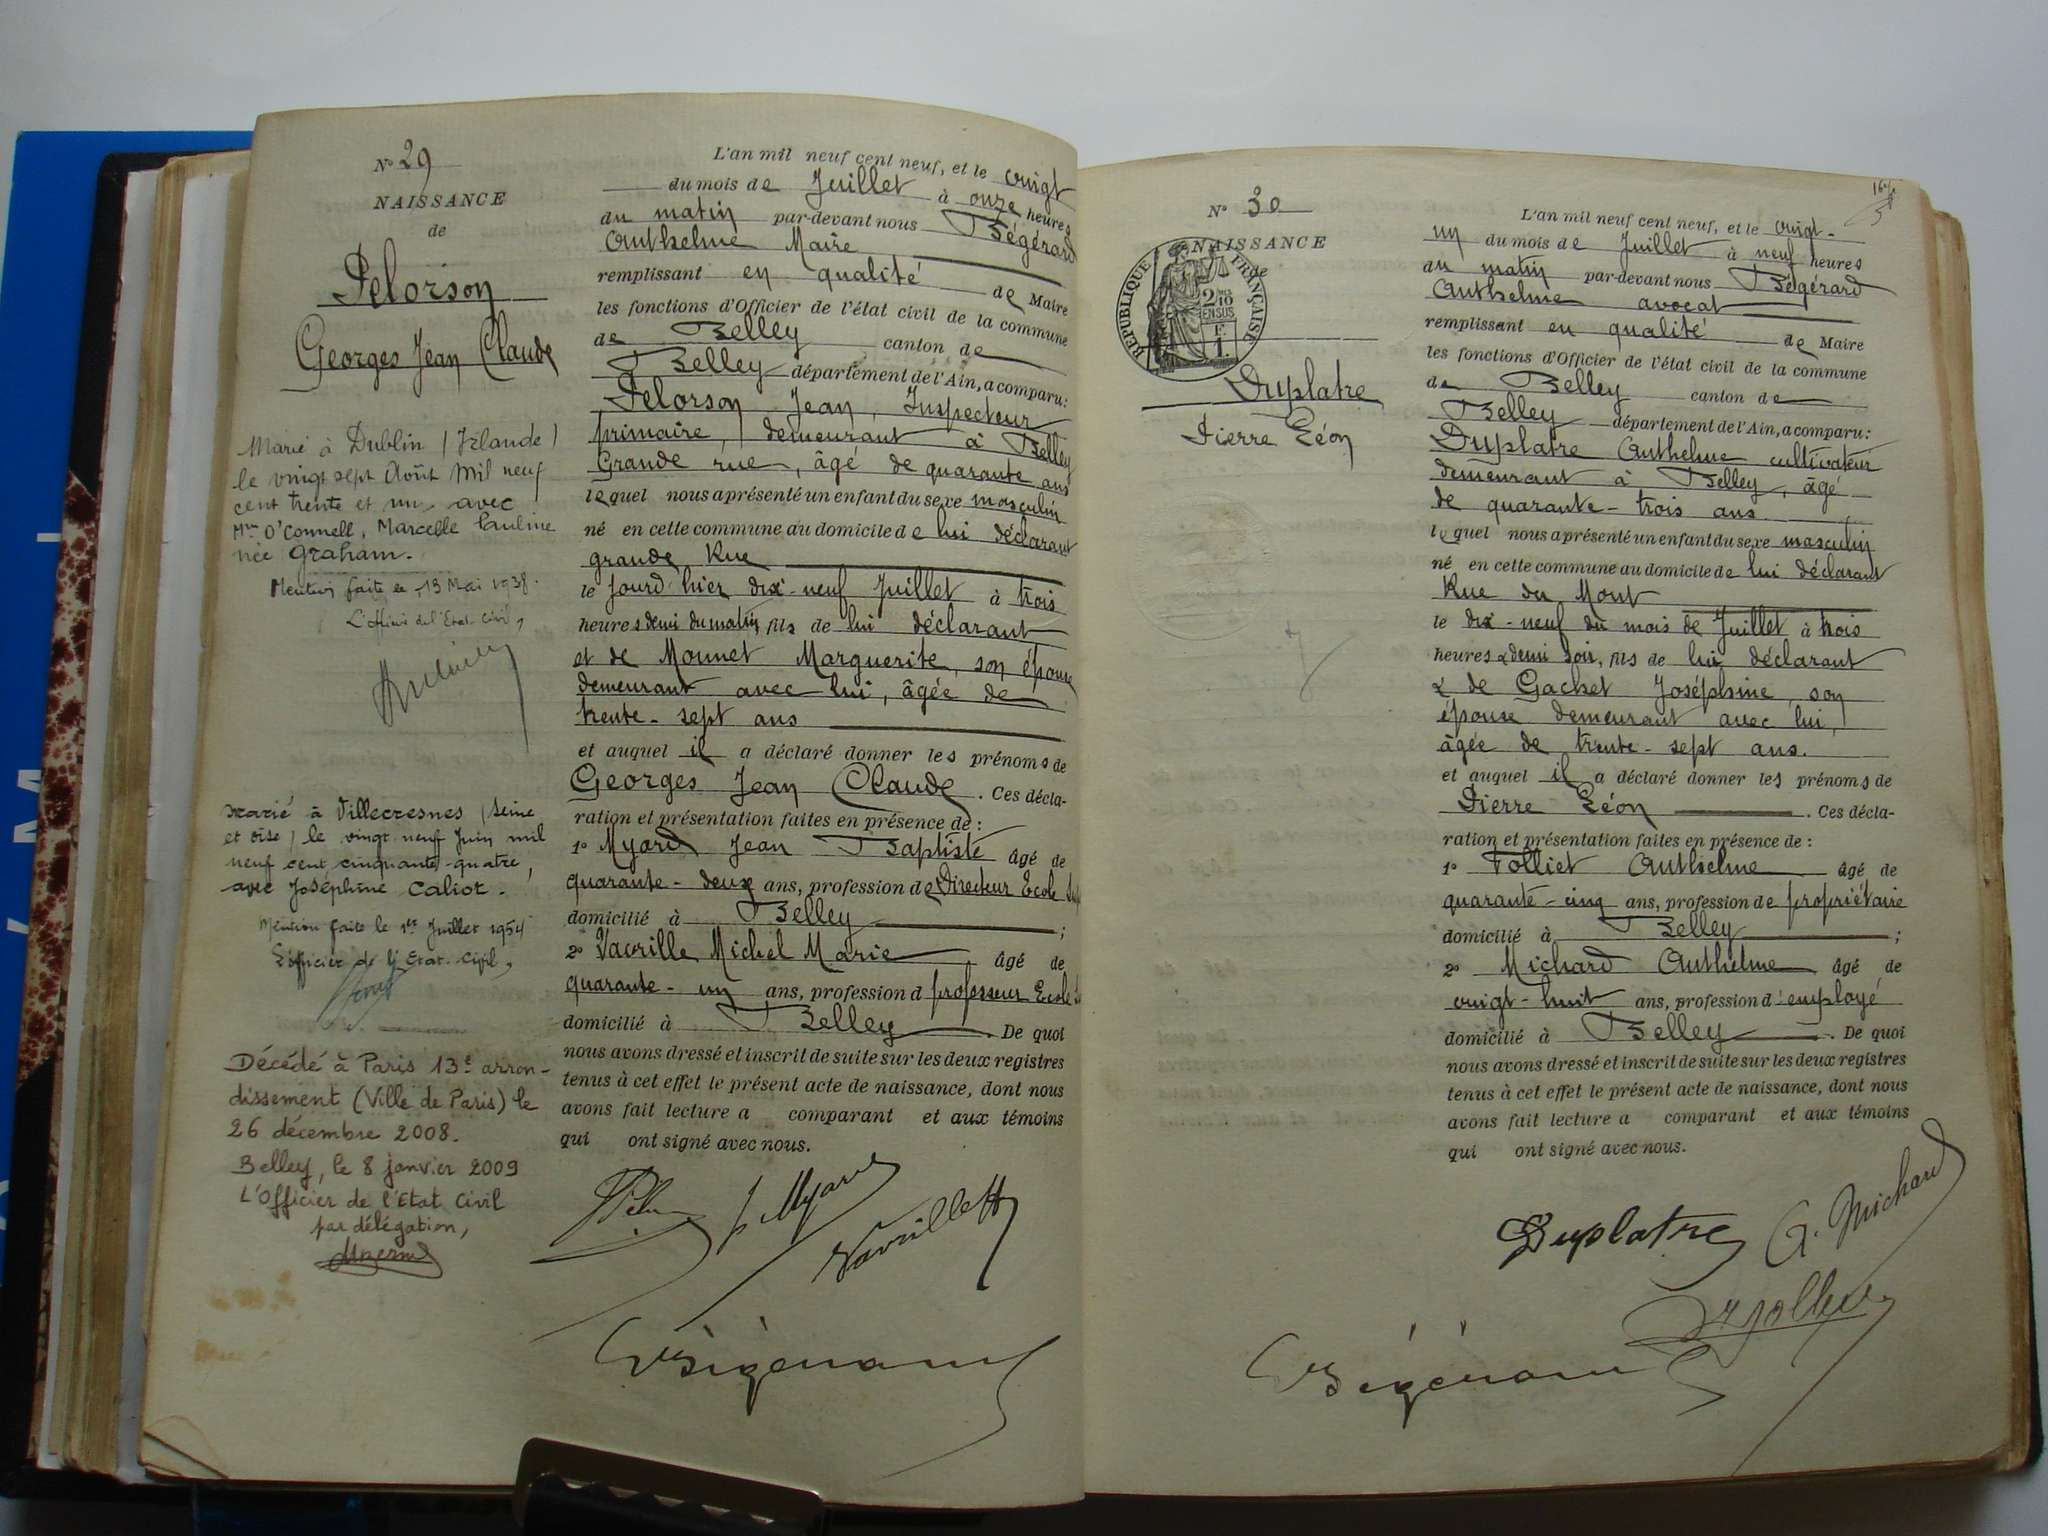 N° 29
NAISSANCE
de
Pelorson
Georges Jean Claude
Marié à Dublin (Irlande)
le vingt sept Août mil neuf
cent trente et un avec
Mme O'Connell, Marcelle Pauline
née Graham.
Mention faite le 13 Mai 1938.
L'Officier de l'Etat Civil,
Marié à Villecresnes (Seine
et Oise) le vingt neuf Juin mil
neuf cent cinquante-quatre,
avec Joséphine Caliot.
Mention faite le 1er Juillet 1954
L'Officier de l'Etat-Civil,
Décédé à Paris 13e arron-
dissement (Ville de Paris) le
26 décembre 2008.
Belley, le 8 janvier 2009
L'Officier de l'Etat Civil
par délégation,
L'an mil neuf cent neuf, et le vingt
du mois de Juillet à onze heures
du matin par-devant nous Bégérard
Anthelme Maire
remplissant en qualité de Maire
les fonctions d'Officier de l'état civil de la commune
de Belley canton de
Belley département de l'Ain, a comparu:
Pelorson Jean, Inspecteur
primaire, demeurant à Belley
Grande rue, âgé de quarante ans
lequel nous a présenté un enfant du sexe masculin
né en cette commune au domicile de lui déclarant
grande Rue
le jourd'hier dix-neuf Juillet à trois
heures demi du matin, fils de lui déclarant
et de Mounet Marguerite, son épouse
demeurant avec lui, âgée de
trente-sept ans
et auquel il a déclaré donner les prénoms de
Georges Jean Claude. Ces décla-
ration et présentation faites en présence de :
1° Myard Jean Baptiste âgé de
quarante-deux ans, profession de Directeur Ecole
domicilié à Belley ;
2° Vavrille Michel Marie âgé de
quarante-un ans, profession d professeur Ecole
domicilié à Belley. De quoi
nous avons dressé et inscrit de suite sur les deux registres
tenus à cet effet le présent acte de naissance, dont nous
avons fait lecture a comparant et aux témoins
qui ont signé avec nous.
J. Myard
Bégérard
N° 30
NAISSANCE
de
RÉPUBLIQUE FRANÇAISE
2/10
EN SUS
F.
1.
Duplatre
Pierre Léon
L'an mil neuf cent neuf, et le vingt-
un du mois de Juillet à neuf heures
du matin par-devant nous Bégérard
Anthelme avocat
remplissant en qualité de Maire
les fonctions d'Officier de l'état civil de la commune
de Belley canton de
Belley département de l'Ain, a comparu:
Duplatre Anthelme cultivateur
demeurant à Belley, âgé
de quarante-trois ans
lequel nous a présenté un enfant du sexe masculin
né en cette commune au domicile de lui déclarant
Rue du Mont
le dix-neuf du mois de Juillet à trois
heures & demi soir, fils de lui déclarant
& de Gachet Joséphine, son
épouse demeurant avec lui,
âgée de trente-sept ans.
et auquel il a déclaré donner les prénoms de
Pierre Léon. Ces décla-
ration et présentation faites en présence de :
1° Folliet Anthelme âgé de
quarante-cinq ans, profession de propriétaire
domicilié à Belley ;
2° Michard Anthelme âgé de
vingt-huit ans, profession d'employé
domicilié à Belley. De quoi
nous avons dressé et inscrit de suite sur les deux registres
tenus à cet effet le présent acte de naissance, dont nous
avons fait lecture a comparant et aux témoins
qui ont signé avec nous.
Duplatre A. Michard
Bégérard